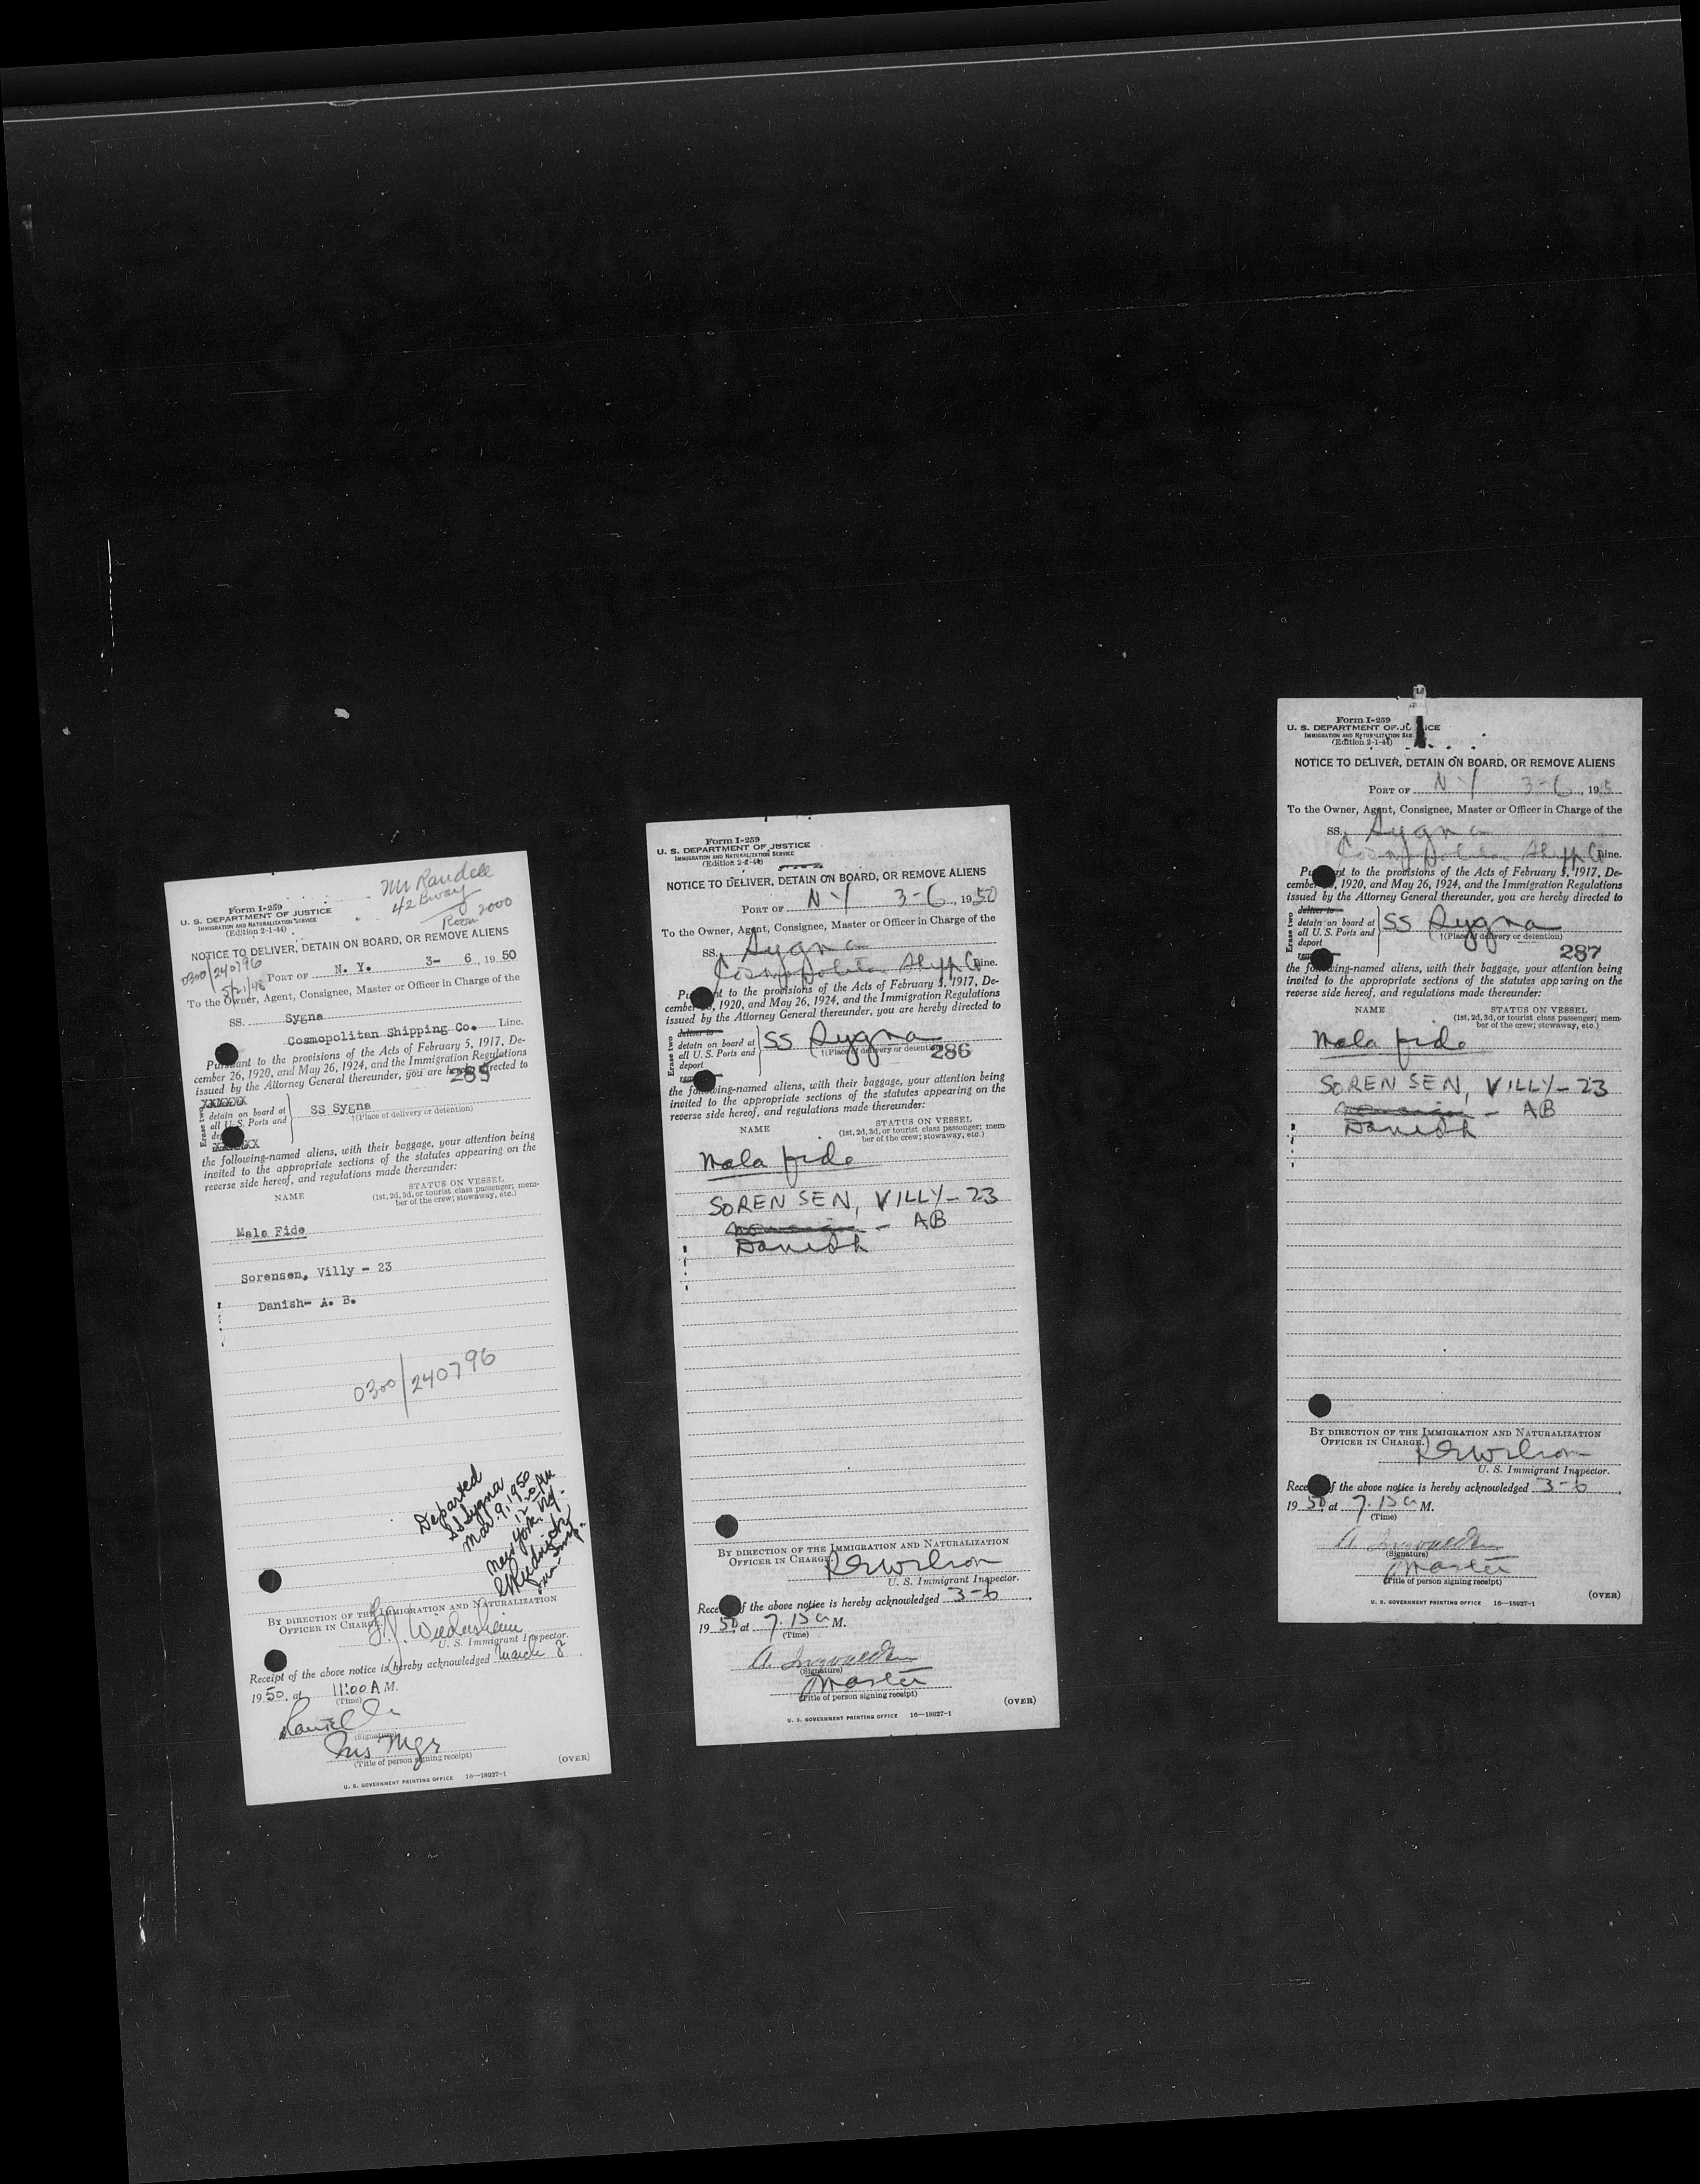 Mr Randell
42 Bway
Room 2000
Form I-259
U. S. DEPARTMENT OF JUSTICE
IMMIGRATION AND NATURALIZATION SERVICE
(Edition 2-1-44)
NOTICE TO DELIVER, DETAIN ON BOARD, OR REMOVE ALIENS
0300/240796
5/21/48
PORT OF N. Y. 3- 6, 1950
To the Owner, Agent, Consignee, Master or Officer in Charge of the
SS. Sygna
Cosmopolitan Shipping Co. Line.
Pursuant to the provisions of the Acts of February 5, 1917, De-
cember 26, 1920, and May 26, 1924, and the Immigration Regulations
issued by the Attorney General thereunder, you are hereby directed to
285
Erase two
detain on board at
all U. S. Ports and
SS Sygna
†(Place of delivery or detention)
the following-named aliens, with their baggage, your attention being
invited to the appropriate sections of the statutes appearing on the
reverse side hereof, and regulations made thereunder:
NAME STATUS ON VESSEL
(1st, 2d, 3d, or tourist class passenger; mem-
ber of the crew; stowaway, etc.)
Mala Fide
Sorensen, Villy - 23
Danish- A. B.
0300/240796
Departed
SS Sygna
Mar. 9, 1950
New York. N.Y.
BY DIRECTION OF THE IMMIGRATION AND NATURALIZATION
OFFICER IN CHARGE.
U. S. Immigrant Inspector.
Receipt of the above notice is hereby acknowledged March 8
1950, at 11:00 A M.
(Time)
(Signature)
Ins Mgr
(Title of person signing receipt)
(OVER)
U. S. GOVERNMENT PRINTING OFFICE 16—18027-1
Form I-259
U. S. DEPARTMENT OF JUSTICE
IMMIGRATION AND NATURALIZATION SERVICE
(Edition 2-1-44)
NOTICE TO DELIVER, DETAIN ON BOARD, OR REMOVE ALIENS
PORT OF N Y 3-6, 1950
To the Owner, Agent, Consignee, Master or Officer in Charge of the
SS. Sygna
Cosmopolitan Shipp. Co Line.
Pursuant to the provisions of the Acts of February 5, 1917, De-
cember 26, 1920, and May 26, 1924, and the Immigration Regulations
issued by the Attorney General thereunder, you are hereby directed to
Erase two
deliver to
detain on board at
all U. S. Ports and
deport
SS Sygna
†(Place of delivery or detention)
286
the following-named aliens, with their baggage, your attention being
invited to the appropriate sections of the statutes appearing on the
reverse side hereof, and regulations made thereunder:
NAME STATUS ON VESSEL
(1st, 2d, 3d, or tourist class passenger; mem-
ber of the crew; stowaway, etc.)
Mala fide
SORENSEN, VILLY - 23
- AB
Danish
BY DIRECTION OF THE IMMIGRATION AND NATURALIZATION
OFFICER IN CHARGE.
RGWilson
U. S. Immigrant Inspector.
Receipt of the above notice is hereby acknowledged 3-6,
1950, at 7.15 a M.
(Time)
(Signature)
Master
(Title of person signing receipt)
(OVER)
U. S. GOVERNMENT PRINTING OFFICE 16—18027-1
Form I-259
U. S. DEPARTMENT OF JUSTICE
IMMIGRATION AND NATURALIZATION SER
(Edition 2-1-44)
NOTICE TO DELIVER, DETAIN ON BOARD, OR REMOVE ALIENS
PORT OF N Y 3-6, 195
To the Owner, Agent, Consignee, Master or Officer in Charge of the
SS. Sygna
Cosmopolitan Shipp. Co Line.
Pursuant to the provisions of the Acts of February 5, 1917, De-
cember 26, 1920, and May 26, 1924, and the Immigration Regulations
issued by the Attorney General thereunder, you are hereby directed to
Erase two
deliver to
detain on board at
all U. S. Ports and
deport
SS Sygna
†(Place of delivery or detention)
287
the following-named aliens, with their baggage, your attention being
invited to the appropriate sections of the statutes appearing on the
reverse side hereof, and regulations made thereunder:
NAME STATUS ON VESSEL
(1st, 2d, 3d, or tourist class passenger; mem-
ber of the crew; stowaway, etc.)
Mala fide
SORENSEN, VILLY - 23
- AB
Danish
BY DIRECTION OF THE IMMIGRATION AND NATURALIZATION
OFFICER IN CHARGE.
RGWilson
U. S. Immigrant Inspector.
Receipt of the above notice is hereby acknowledged 3-6,
1950, at 7.15 a M.
(Time)
(Signature)
Master
(Title of person signing receipt)
(OVER)
U. S. GOVERNMENT PRINTING OFFICE 16—18027-1